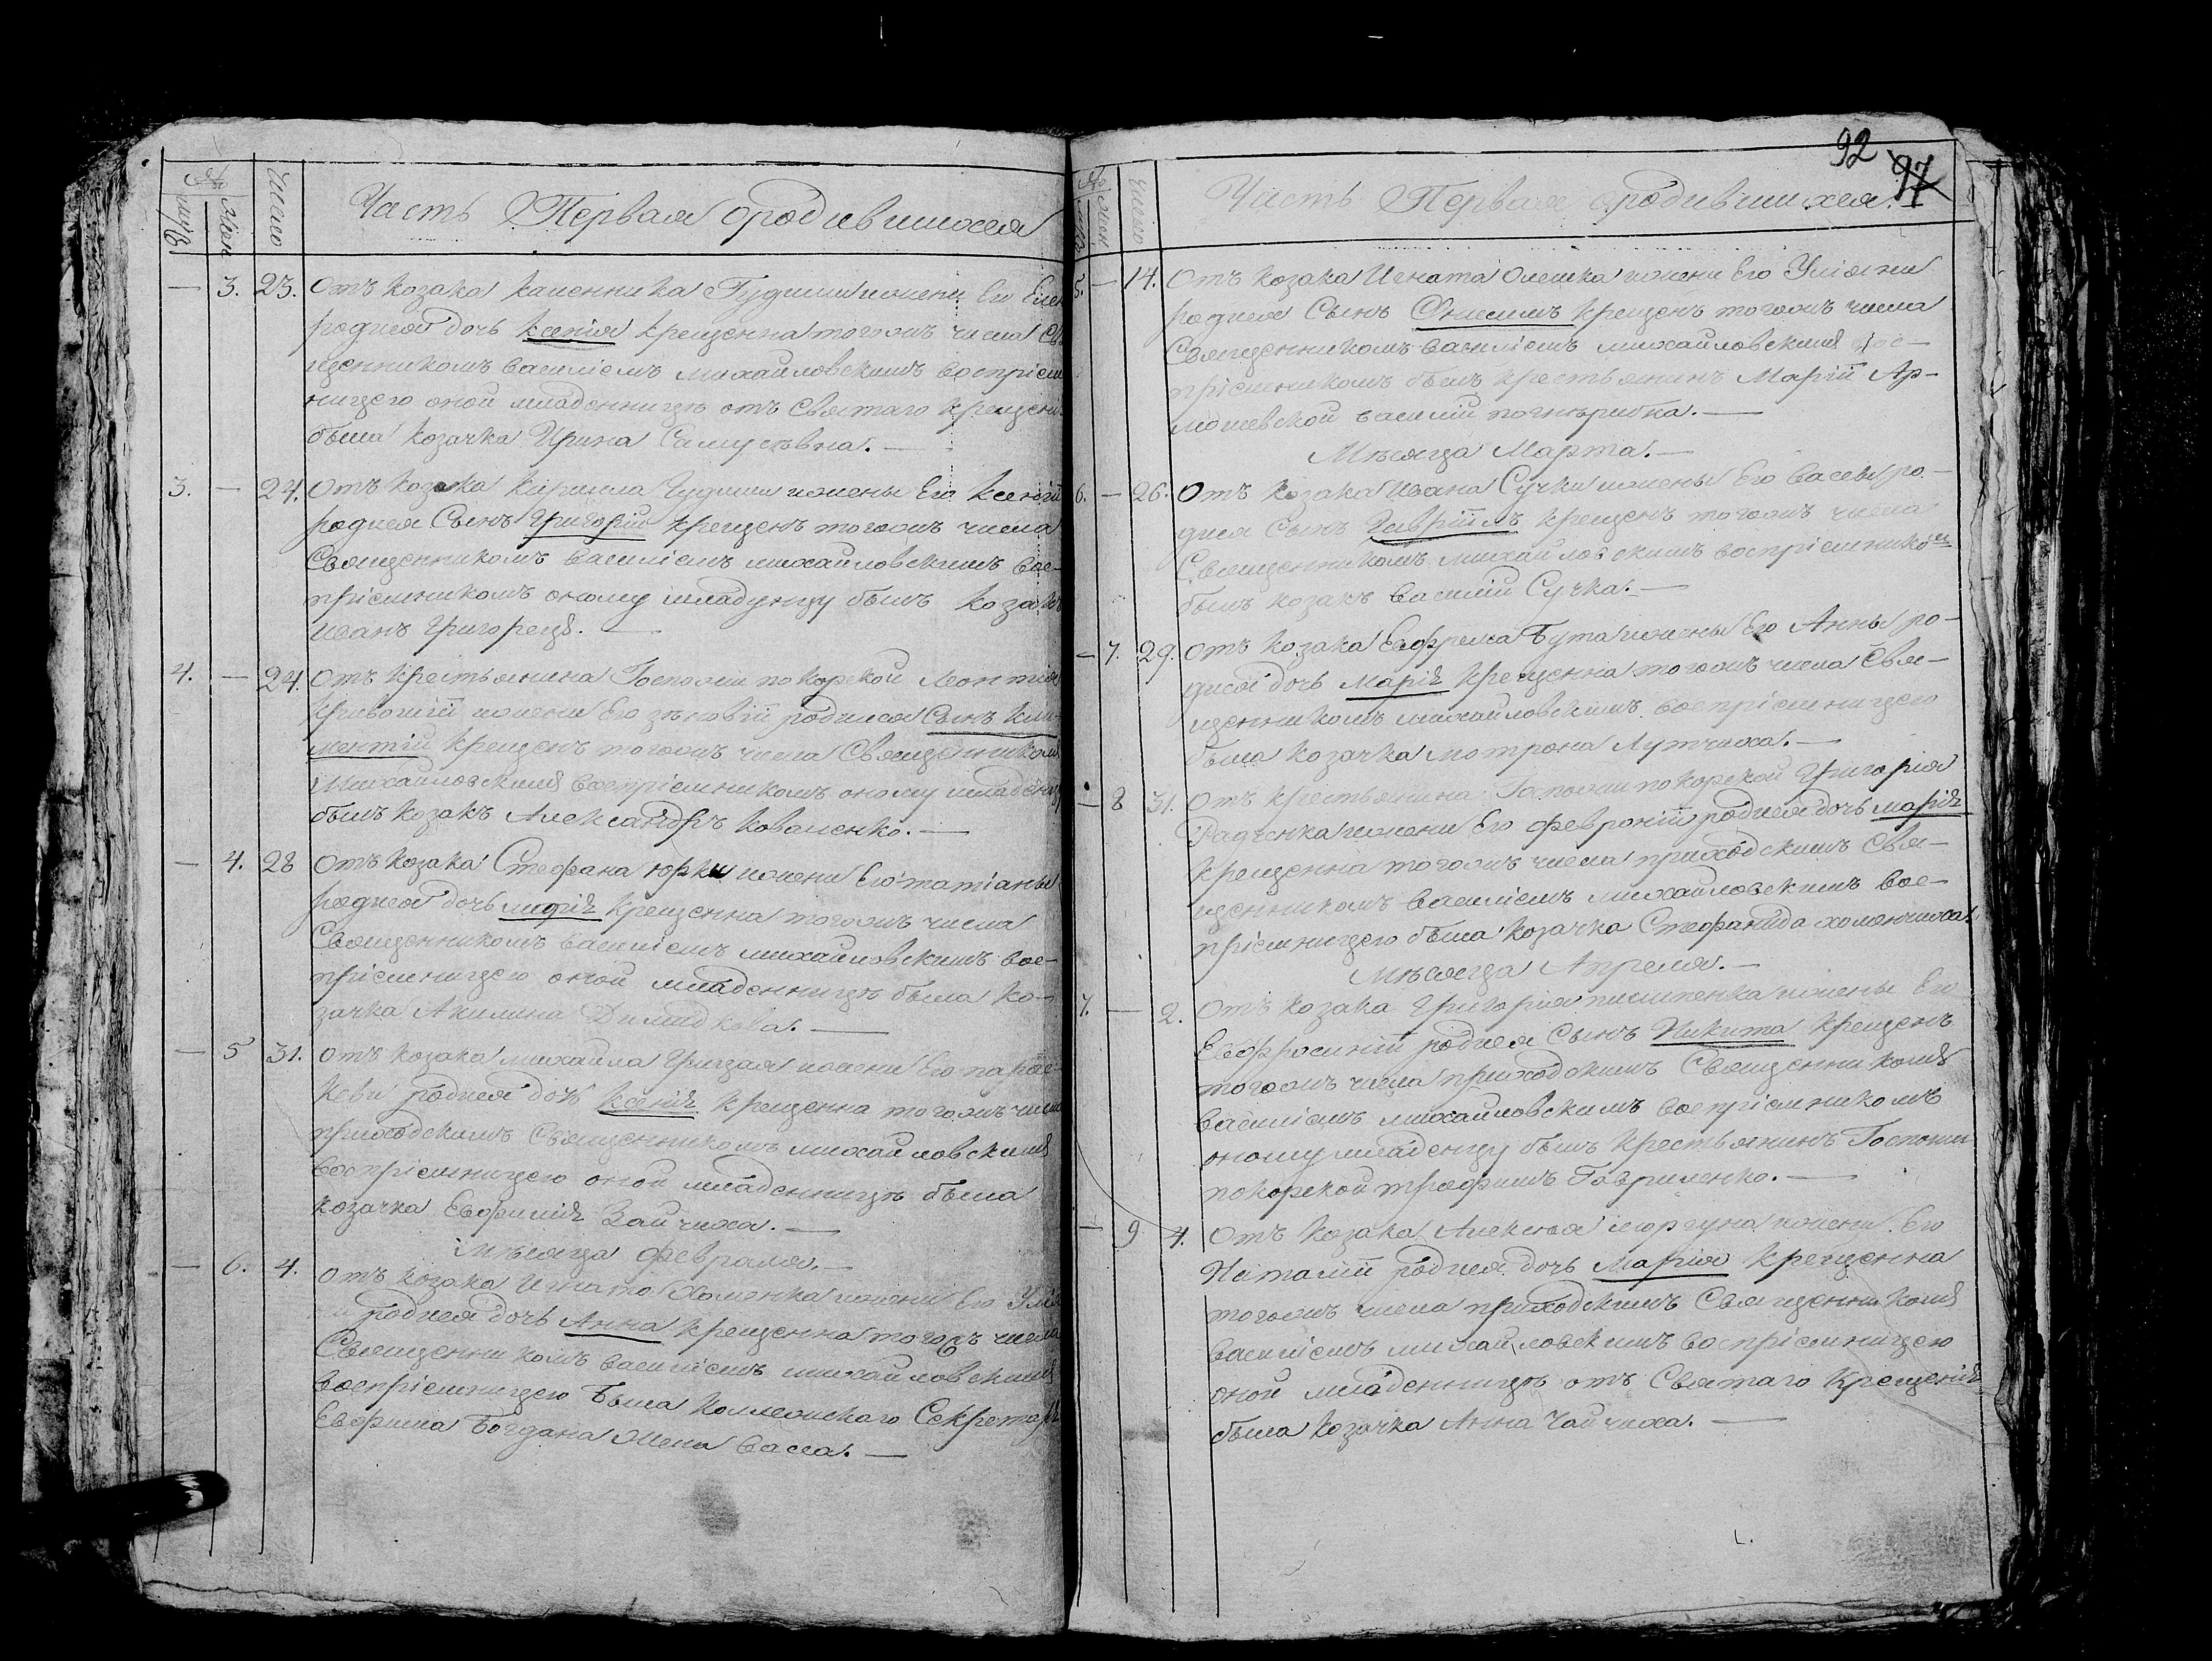 № Число
муж жен
Часть Первая о родившихся
— 3. 23. Отъ козака
и жени Его
родися дочь Ксенія крещенна тогожъ числа
щенникомъ Василіемъ Михайловскимъ воспріем
ницею оной младенницѣ отъ Святаго крещени
была козачка Ирина Самуевна. —
3. — 24. Отъ козака Кирилла и жены Его Ксеніи
родися Сынъ Григорій крещенъ тогожъ числа
Священникомъ Василіемъ Михайловскимъ вос-
пріемникомъ оному младенцу былъ козакъ
Иванъ —
4. — 24. Отъ крестьянина Госпожи Покорской Леонтія
и жени Его Зѣновіи родился Сынъ Кли-
ментій крещенъ тогожъ числа Священникомъ
Михайловскимъ воспріемникомъ оному младенцу
былъ козакъ Александръ Коваленко. —
— 4. 28 Отъ козака Стефана Юрки и жени Его Татіаны
родися дочь Марія крещенна тогожъ числа
Священникомъ Василіемъ Михайловскимъ вос-
пріемницею оной младенницѣ была ко-
зачка Акилина —
— 5 31. Отъ козака Михайла Грицая и жени Его Парас-
кеви родися дочь Ксенія крещенна тогожъ числа
приходскимъ Священникомъ Михайловскимъ
воспріемницею оной младенницѣ была
козачка Евфимія Зайчиха. —
Мѣсяца Февраля. —
— 6. 4. Отъ козака Игната Хоменка и жени Его
родися дочь Анна крещенна тогожъ числа
Священникомъ Василіемъ Михайловскимъ
воспріемницею была Коллежскаго Секретаря
Ефрима Богдана Жена Васса. —
92 97
№ Число
муж жен
Часть Первая о родившихся
5. — 14. Отъ козака Игната Олешка и жени Его Уліяни
родися Сынъ Онисимъ крещенъ тогожъ числа
Священникомъ Василіемъ Михайловскимъ вос-
пріемникомъ былъ крестьянинъ Маріи Ар-
Василій —
Мѣсяца Марта. —
6. — 26. Отъ козака Ивана Сучки и жены Его Вассы ро-
дися Сынъ Гавріилъ крещенъ тогожъ числа
Священникомъ Михайловскимъ воспріемникомъ
былъ козакъ Василій Сучка. —
— 7. 29. Отъ козака Евфрема Бута и жены Его Анны ро-
дися дочь Марія крещенна тогожъ числа Свя-
щенникомъ Михайловскимъ воспріемницею
была козачка Мотрона —
— 8 31. Отъ крестьянина Госпожи Покорской Григорія
Радченка и жени Его Февроніи родися дочь Марія
крещенна тогожъ числа приходскимъ Свя-
щенникомъ Василіемъ Михайловскимъ вос-
пріемницею была козачка Стефанида Хоменчиха.
Мѣсяца Апреля. —
7. — 2. Отъ козака Григорія и жены Его
Евфросиніи родися Сынъ Никита крещенъ
тогожъ числа приходскимъ Священникомъ
Василіемъ Михайловскимъ воспріемникомъ
оному младенцу былъ крестьянинъ Госпожи
Покорской Трофимъ Гавриленко. —
— 9 4. Отъ козака Алексѣя и жени Его
Наталіи родися дочь Марія крещенна
тогожъ числа приходскимъ Священникомъ
Василіемъ Михайловскимъ воспріемницею
оной младенницѣ отъ Святаго Крещенія
была козачка Анна Чайчиха. —